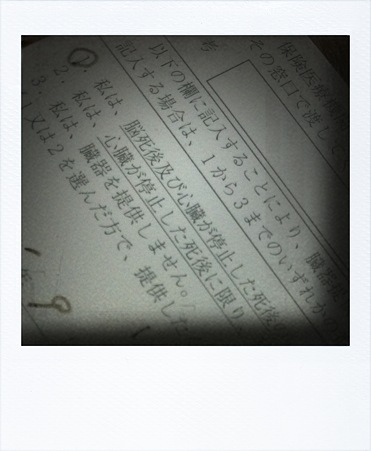 保険医療
その窓口で渡して
考
以下の欄に記入することにより、臓
記入する場合は、1から3までのいずれか
1. 私は、脳死後及び心臓が停止した死後
2. 私は、心臓が停止した死後に限り、
3. 私は、臓器を提供しません。
又は2を選んだ方で、提供した